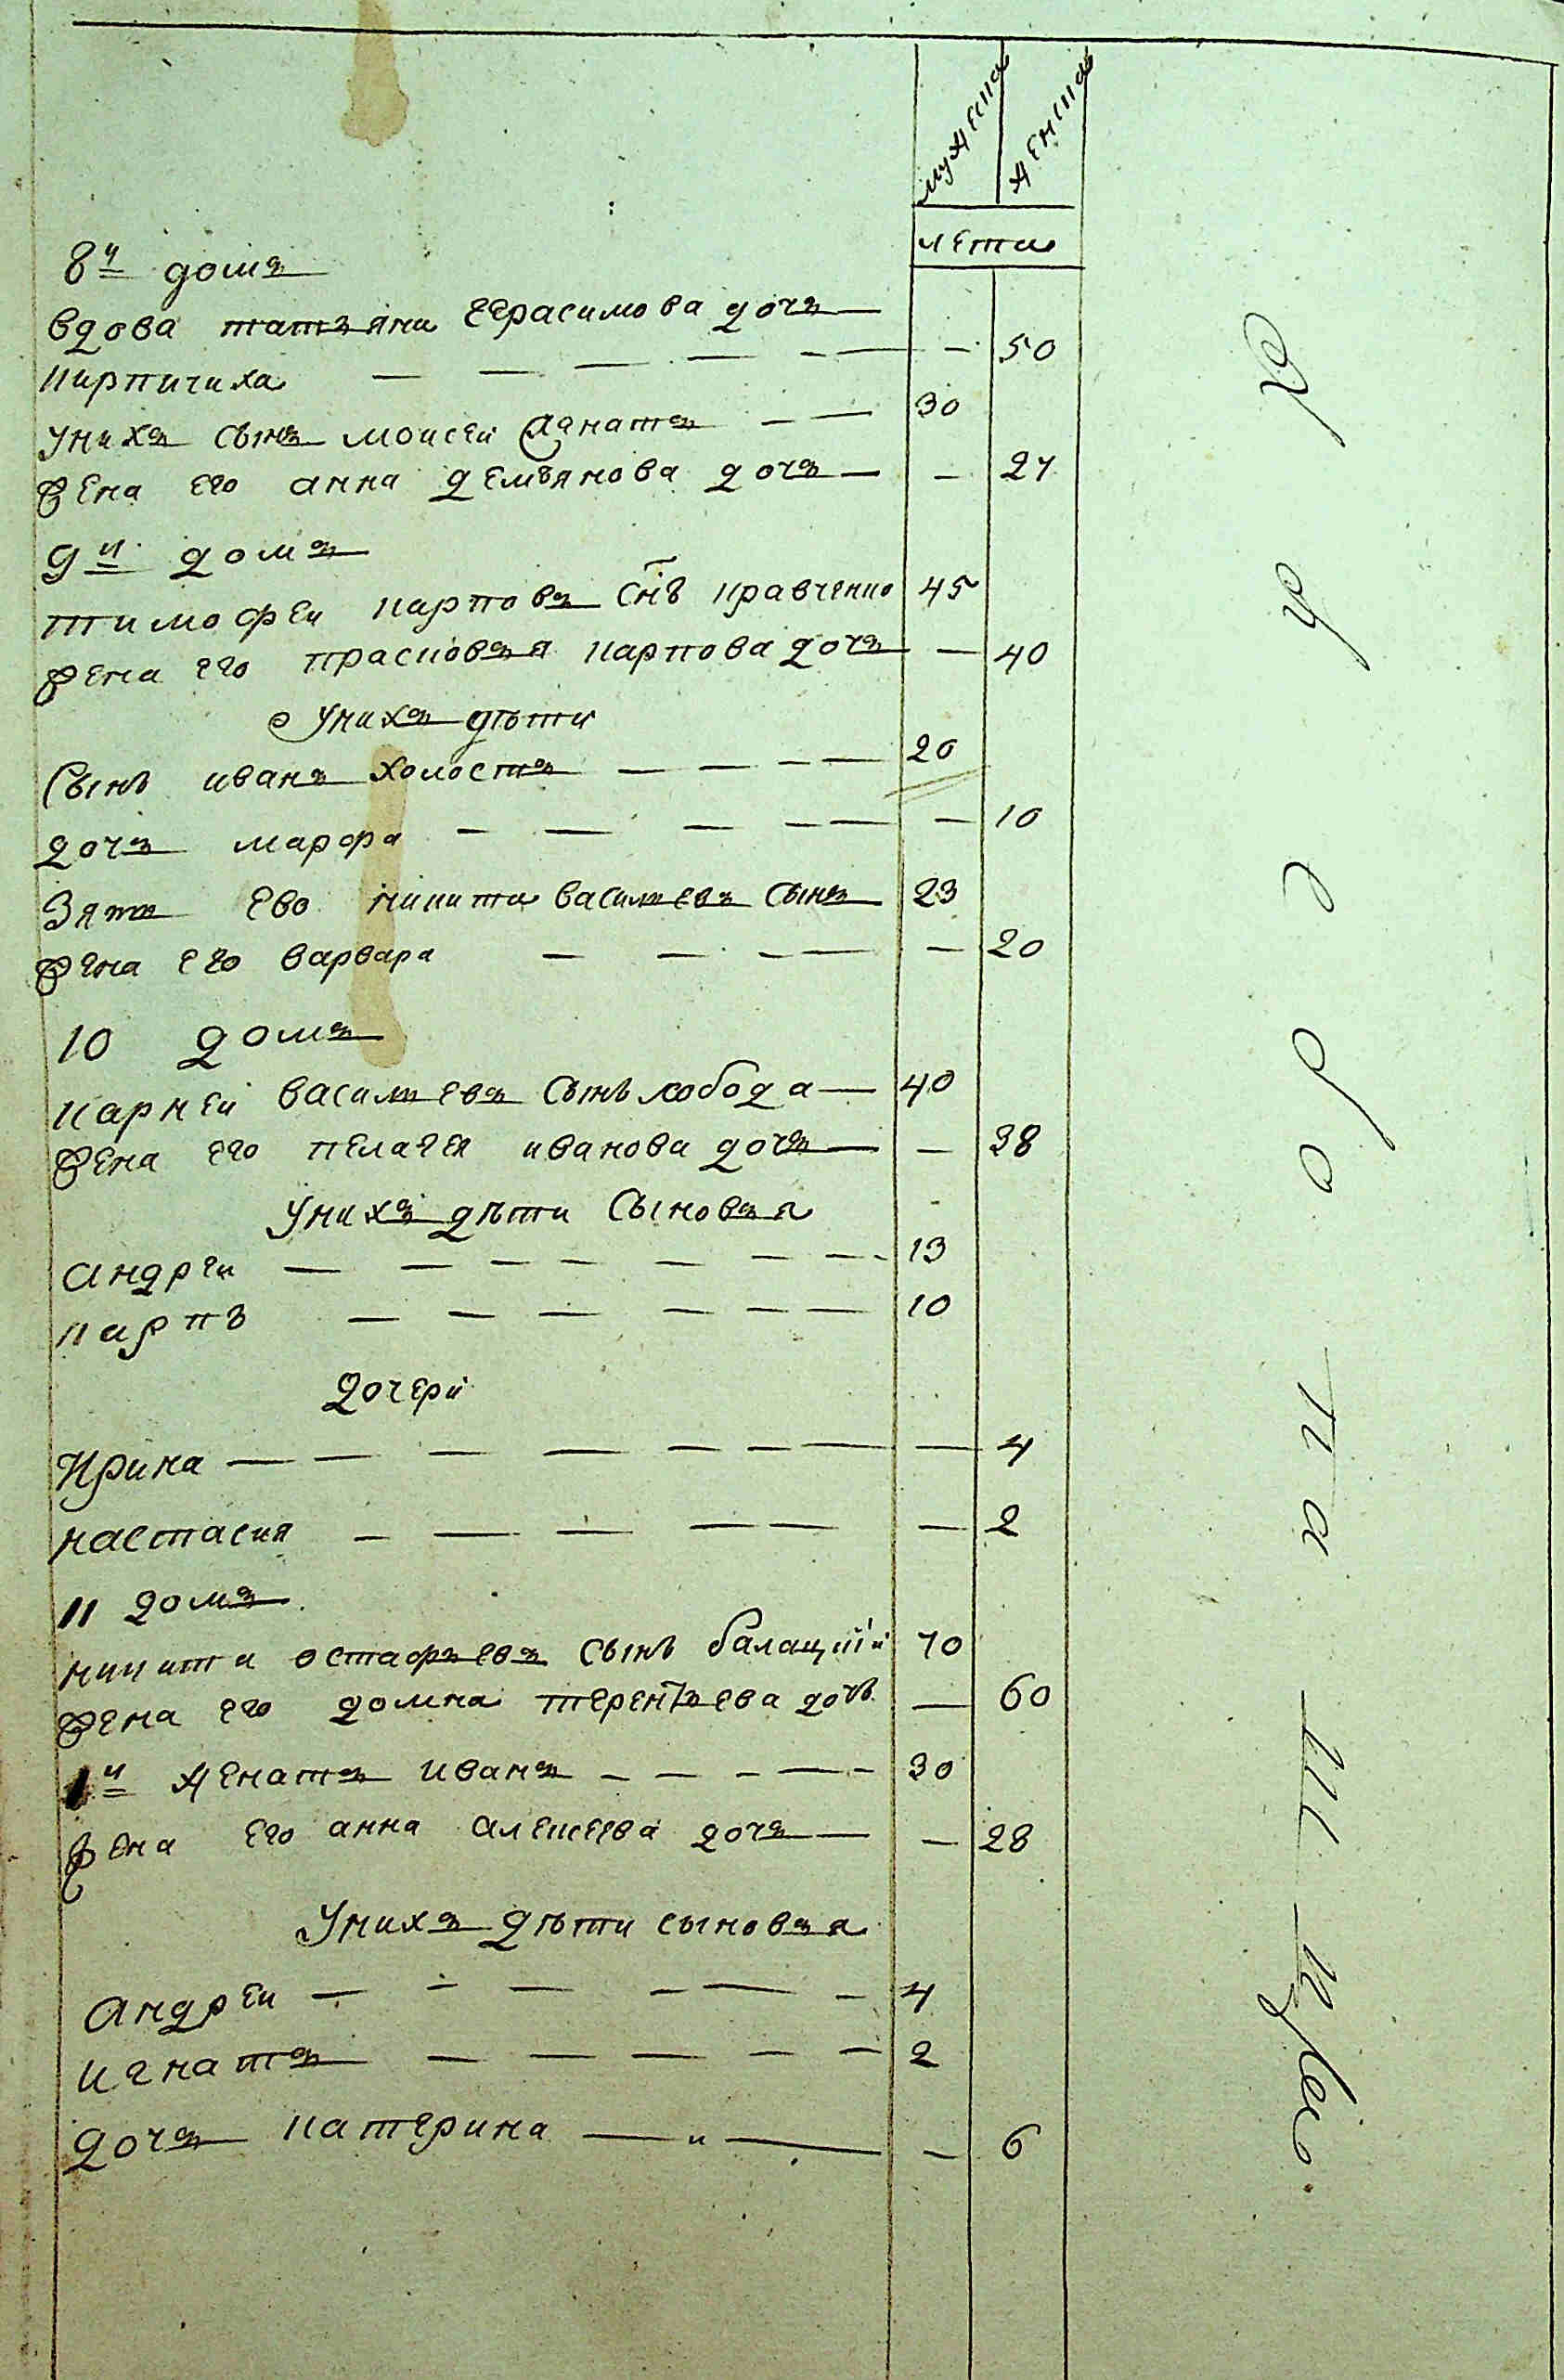 мужеска
женска
лета
8й домъ
вдова татьяна герасимова дочь 50
кирпичиха
у нихъ сынъ моисей женатъ 30
жена его анна демьянова дочь 27
9й домъ
тимофеи карповъ снъ кравченко 45
жена его прасковья карпова дочь 40
у нихъ дѣти
сынъ иванъ холостъ 20
дочь марфа 10
зять ево никита васильевъ сынъ 23
жена его варвара 20
10 домъ
карнеи васильевъ сынъ лобода 40
жена его пелагея иванова дочь 38
у нихъ дѣти сыновья
андреи 13
карпъ 10
дочери
ирина 4
настасия 2
11 домъ
никита остафьевъ сынъ балацкий 70
жена его домна терентьева дочь 60
1й женатъ иванъ 30
жена его анна алексеева дочь 28
у нихъ дѣти сыновья
андреи 4
игнатъ 2
дочь катерина 6